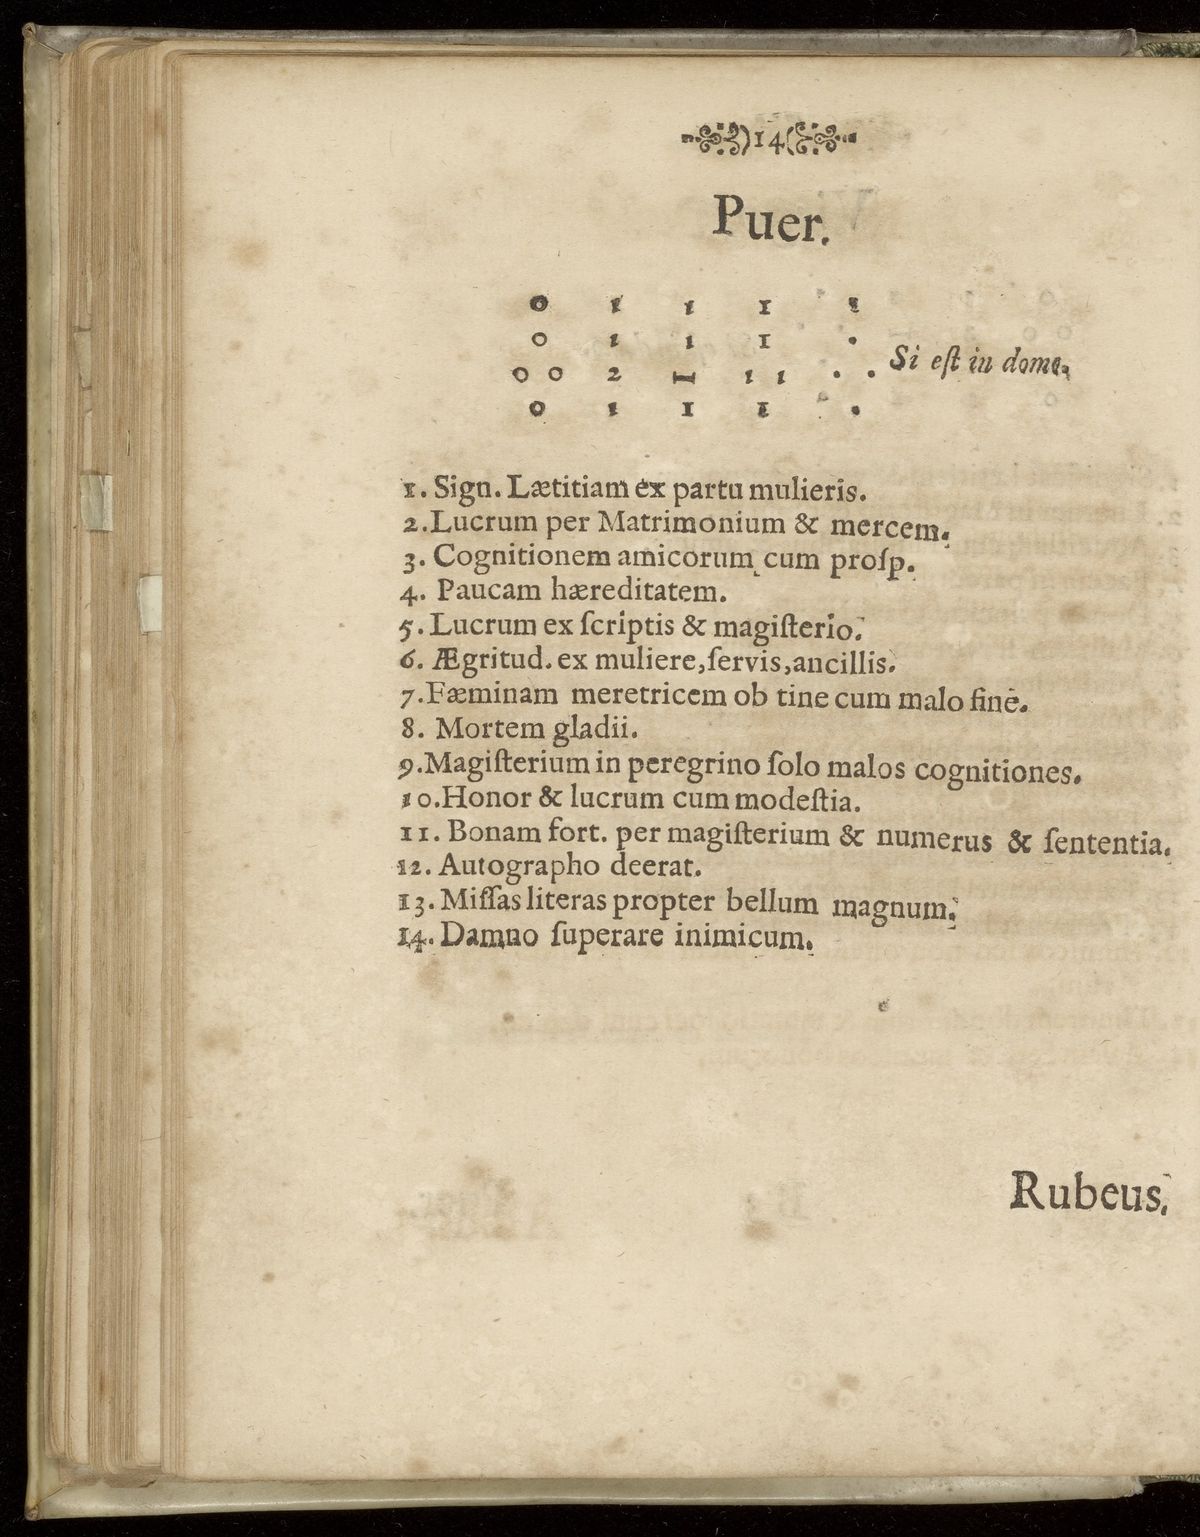 )14(
Puer.
o 1 1 1 1
o 1 1 1 .
o o 2 1 1 1 . . Si eſt in domo.
o 1 1 1 .
1. Sign. Lætitiam ex partu mulieris.
2. Lucrum per Matrimonium & mercem.
3. Cognitionem amicorum cum proſp.
4. Paucam hæreditatem.
5. Lucrum ex ſcriptis & magiſterio.
6. Ægritud. ex muliere, ſervis, ancillis.
7. Fæminam meretricem ob tine cum malo fine.
8. Mortem gladii.
9. Magiſterium in peregrino ſolo malos cognitiones.
10. Honor & lucrum cum modeſtia.
11. Bonam fort. per magiſterium & numerus & ſententia.
12. Autographo deerat.
13. Miſſas literas propter bellum magnum.
14. Damno ſuperare inimicum.
Rubeus.